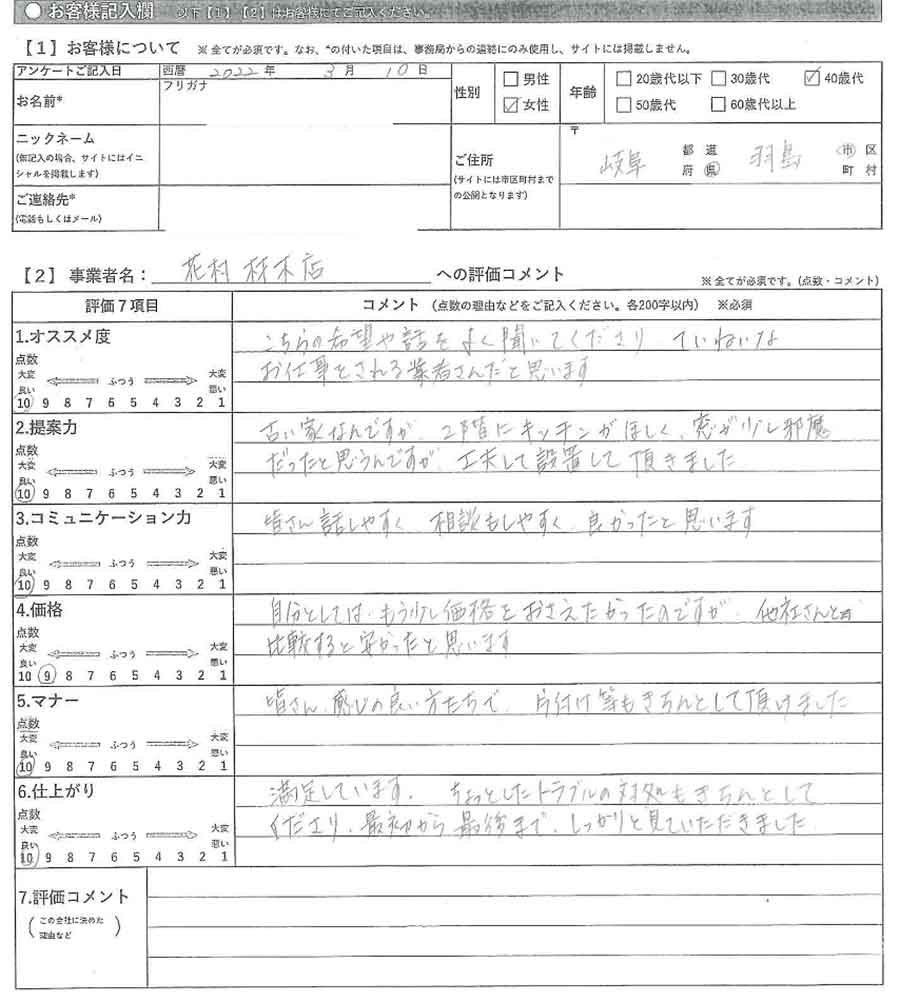 ● お客様記入欄 以下【1】【2】はお客様にてご記入ください。
【1】お客様について ※全てが必須です。なお、*の付いた項目は、事務局からの連絡にのみ使用し、サイトには掲載しません。
アンケートご記入日 西暦 2022年 3月 10日
お名前*
フリガナ
性別
□男性
☑女性
年齢
□20歳代以下 □30歳代 ☑40歳代
□50歳代 □60歳代以上
ニックネーム
(仮記入の場合、サイトにはイニ
シャルを掲載します)
ご連絡先*
(電話もしくはメール)
ご住所
(サイトには市区町村まで
の公開となります)
〒
岐阜 都道府県 羽島 市区町村
【2】事業者名: 花村材木店 への評価コメント
※全てが必須です。(点数・コメント)
評価7項目 コメント (点数の理由などをご記入ください。各200字以内) ※必須
1.オススメ度
点数
大変良い ふつう 大変悪い
10 9 8 7 6 5 4 3 2 1
こちらの希望や話をよく聞いてくださり ていねいな
お仕事をされる業者さんだと思います
2.提案力
点数
大変良い ふつう 大変悪い
10 9 8 7 6 5 4 3 2 1
古い家なんですが、2階にキッチンがほしく、窓が少し邪魔
だったと思うんですが、工夫して設置して頂きました
3.コミュニケーション力
点数
大変良い ふつう 大変悪い
10 9 8 7 6 5 4 3 2 1
皆さん話しやすく 相談もしやすく、良かったと思います
4.価格
点数
大変良い ふつう 大変悪い
10 9 8 7 6 5 4 3 2 1
自分としては、もう少し価格をおさえたかったのですが、他社さんと
比較すると安かったと思います
5.マナー
点数
大変良い ふつう 大変悪い
10 9 8 7 6 5 4 3 2 1
皆さん、感じの良い方たちで、片付け等もきちんとして頂けました
6.仕上がり
点数
大変良い ふつう 大変悪い
10 9 8 7 6 5 4 3 2 1
満足しています。 ちょっとしたトラブルの対処もきちんとして
くださり、最初から最後まで、しっかりと見ていただきました
7.評価コメント
(この会社に決めた
理由など)